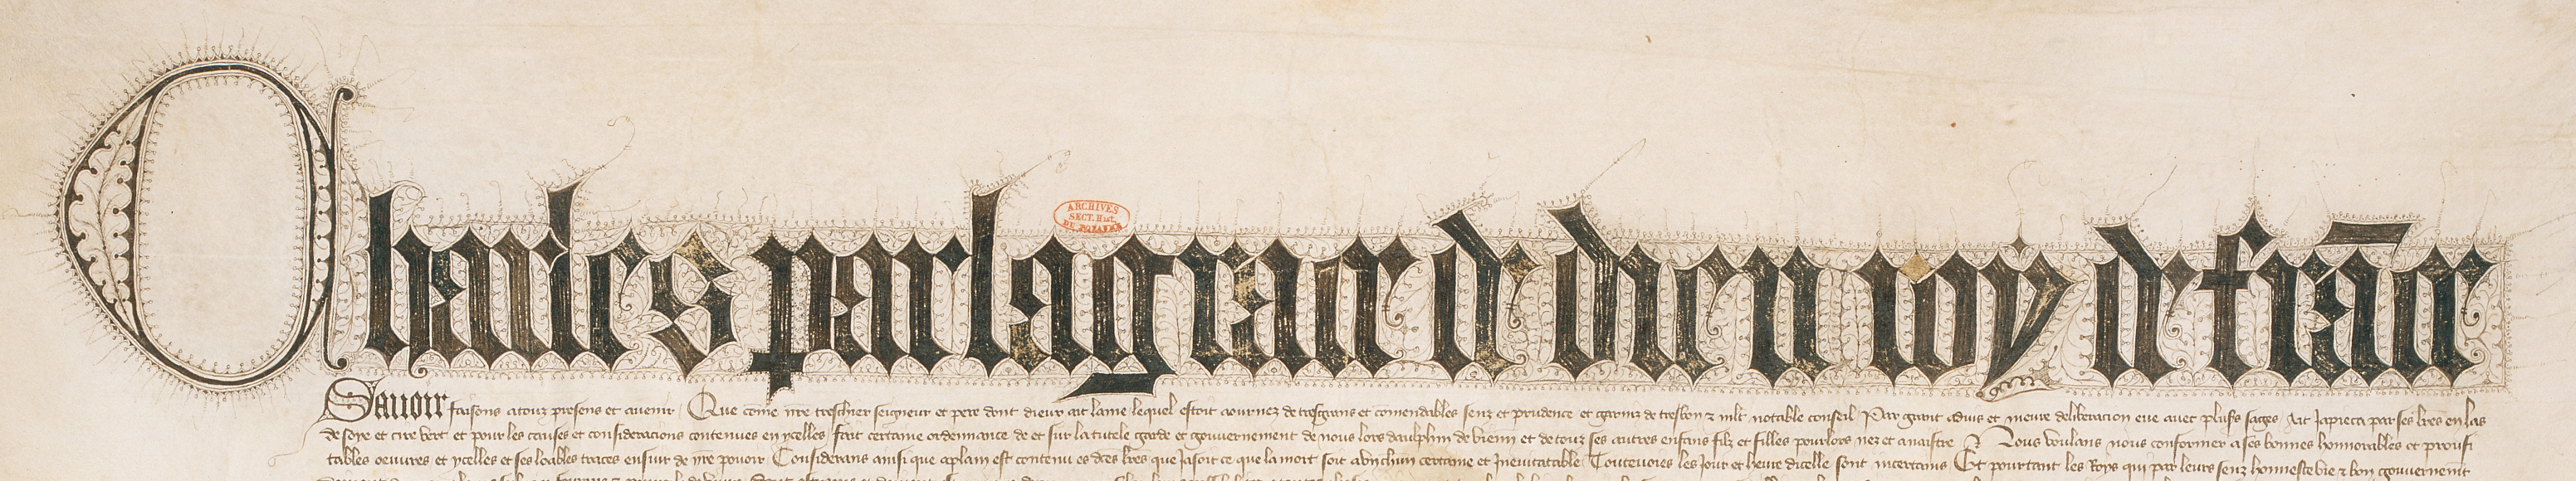 Charles par la grace de dieu roy de frāce
ARCHIVES
SECT. Hist.
Sauoir faisons a touz presens et auenir Que cōme nr̄e treschier seigneur et pere dont dieux ait lame lequel estoit aournez de tresgrans et comendables senz et prudence et garniz de tresbon z mlt notable conseil Par grant aduis et meure deliberacion eue auec plus̄s sages Ait Japieca par ses lr̄es en las
de soye et cire vert et pour les causes et consideracions contenues en ycelles fait certaine ordennance de et sur la tutele garde et gouuernement de nous lors daulphin de vienn̄ et de touz ses autres enfans filz et filles pour lors nez et a naistre Nous voulans nous conformer a ses bonnes honnorables et proufi
tables oeuures et ycelles et ses loables traces ensuir de nr̄e pouoir Considerans ainsi que a plain est contenu es dc̄es lr̄es que Jasoit ce que la mort soit a vn chun certaine et Ineuitatable Toutevoies les Jour et heure dicelle sont incertains Et pourtant les Roys qui par leurs senz honneste vie z bon gouuernem̄t